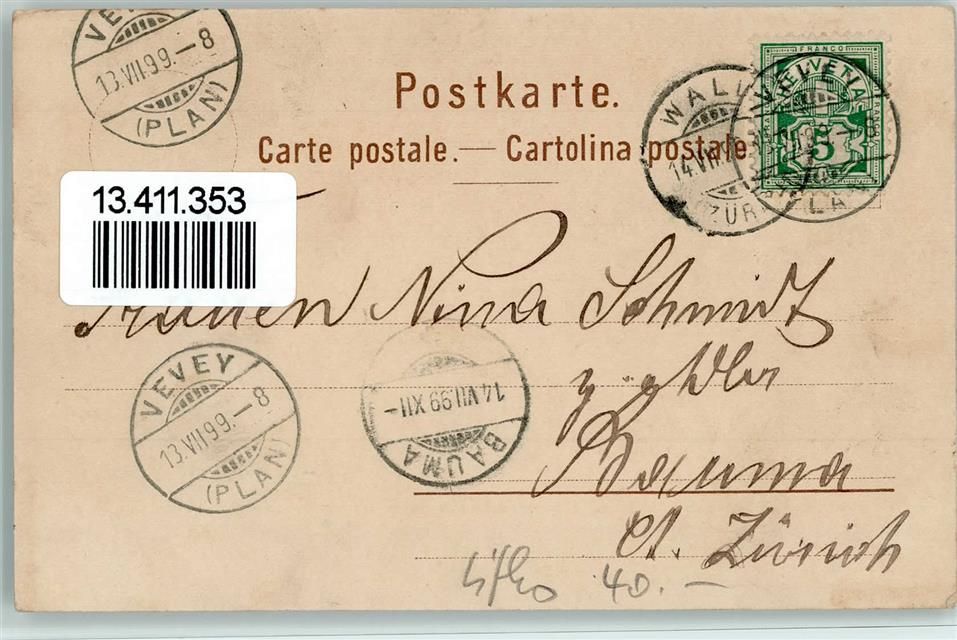 VEVEY
13.VII.99.-8
(PLAN)
Postkarte.
Carte postale.— Cartolina postale
FRANCO
HELVETIA
5
FRANCO
WALD
14.VII
(ZÜR
VEVEY
99.-8
(PLAN)
13.411.353
Nina Schmidt
VEVEY
13.VII.99.-8
(PLAN)
14 VII.99 XII-
BAUMA
Bauma
Ct. Zürich
40.-